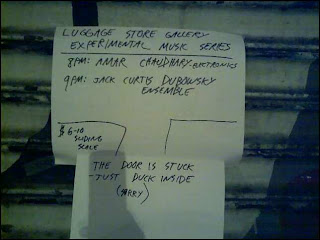 LUGGAGE STORE GALLERY
EXPERIMENTAL MUSIC SERIES
8PM: AMAR CHAUDHARY-ELECTRONICS
9PM: JACK CURTIS DUBOWSKY
ENSEMBLE
$6-10
SLIDING
SCALE
THE DOOR IS STUCK
-JUST DUCK INSIDE
(SORRY)